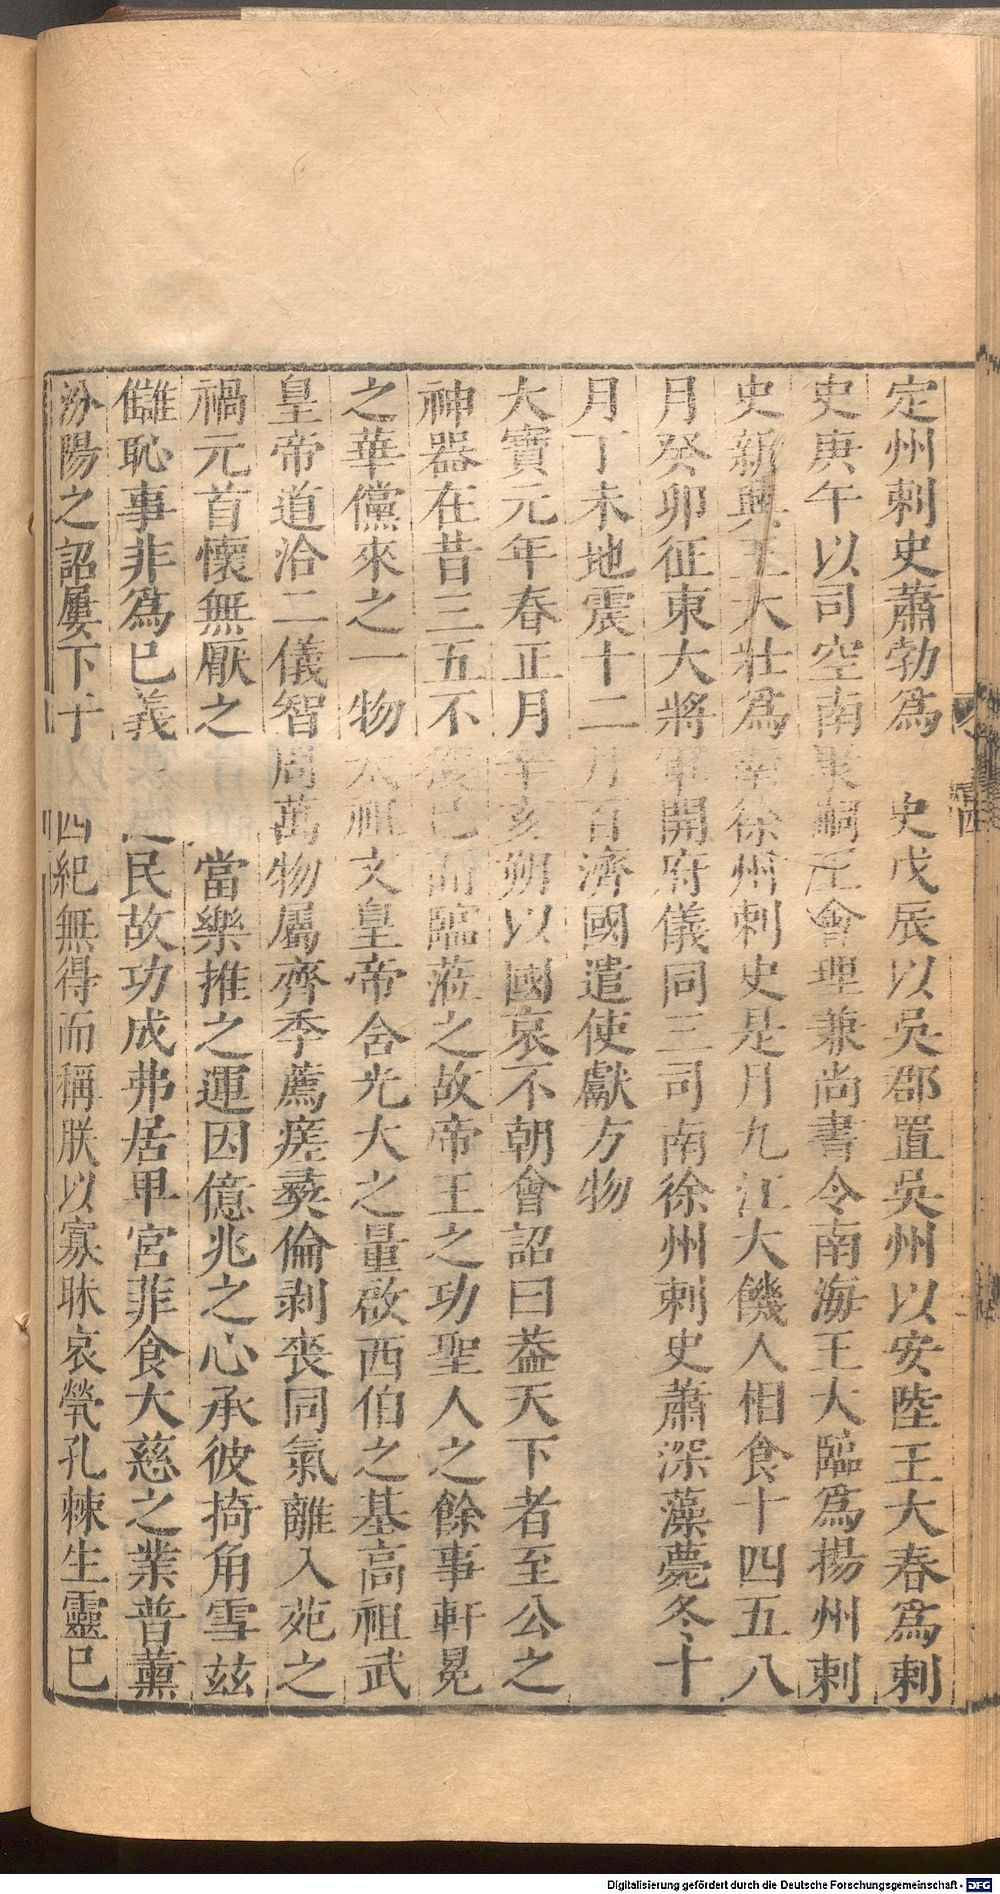 定州刺史蕭勃爲 史戊辰以吳郡置吳州以安陸王大春爲刺
史庚午以司空南 嗣王會理兼尚書令南海王大臨爲揚州刺
史新興王大壯爲南徐州刺史是月九江大饑人相食十四五八
月癸卯征東大將軍開府儀同三司南徐州刺史蕭深藻薨冬十
月丁未地震十二月百濟國遣使獻方物
大寶元年春正月辛亥朔以國哀不朝會詔曰葢天下者至公之
神器在昔三五不 已而臨蒞之故帝王之功聖人之餘事軒冕
之華儻來之一物太祖文皇帝含光大之量啟西伯之基高祖武
皇帝道洽二儀智周萬物屬齊季薦瘥彝倫剥喪同氣離入苑之
禍元首懷無厭之 當樂推之運因億兆之心承彼掎角雪茲
讎恥事非爲已義 民故功成弗居卑宮菲食大慈之業普薰
汾陽之詔屢下于 四紀無得而稱朕以寡昧哀煢孔棘生靈已
Digitalisierung gefördert durch die Deutsche Forschungsgemeinschaft - DFG